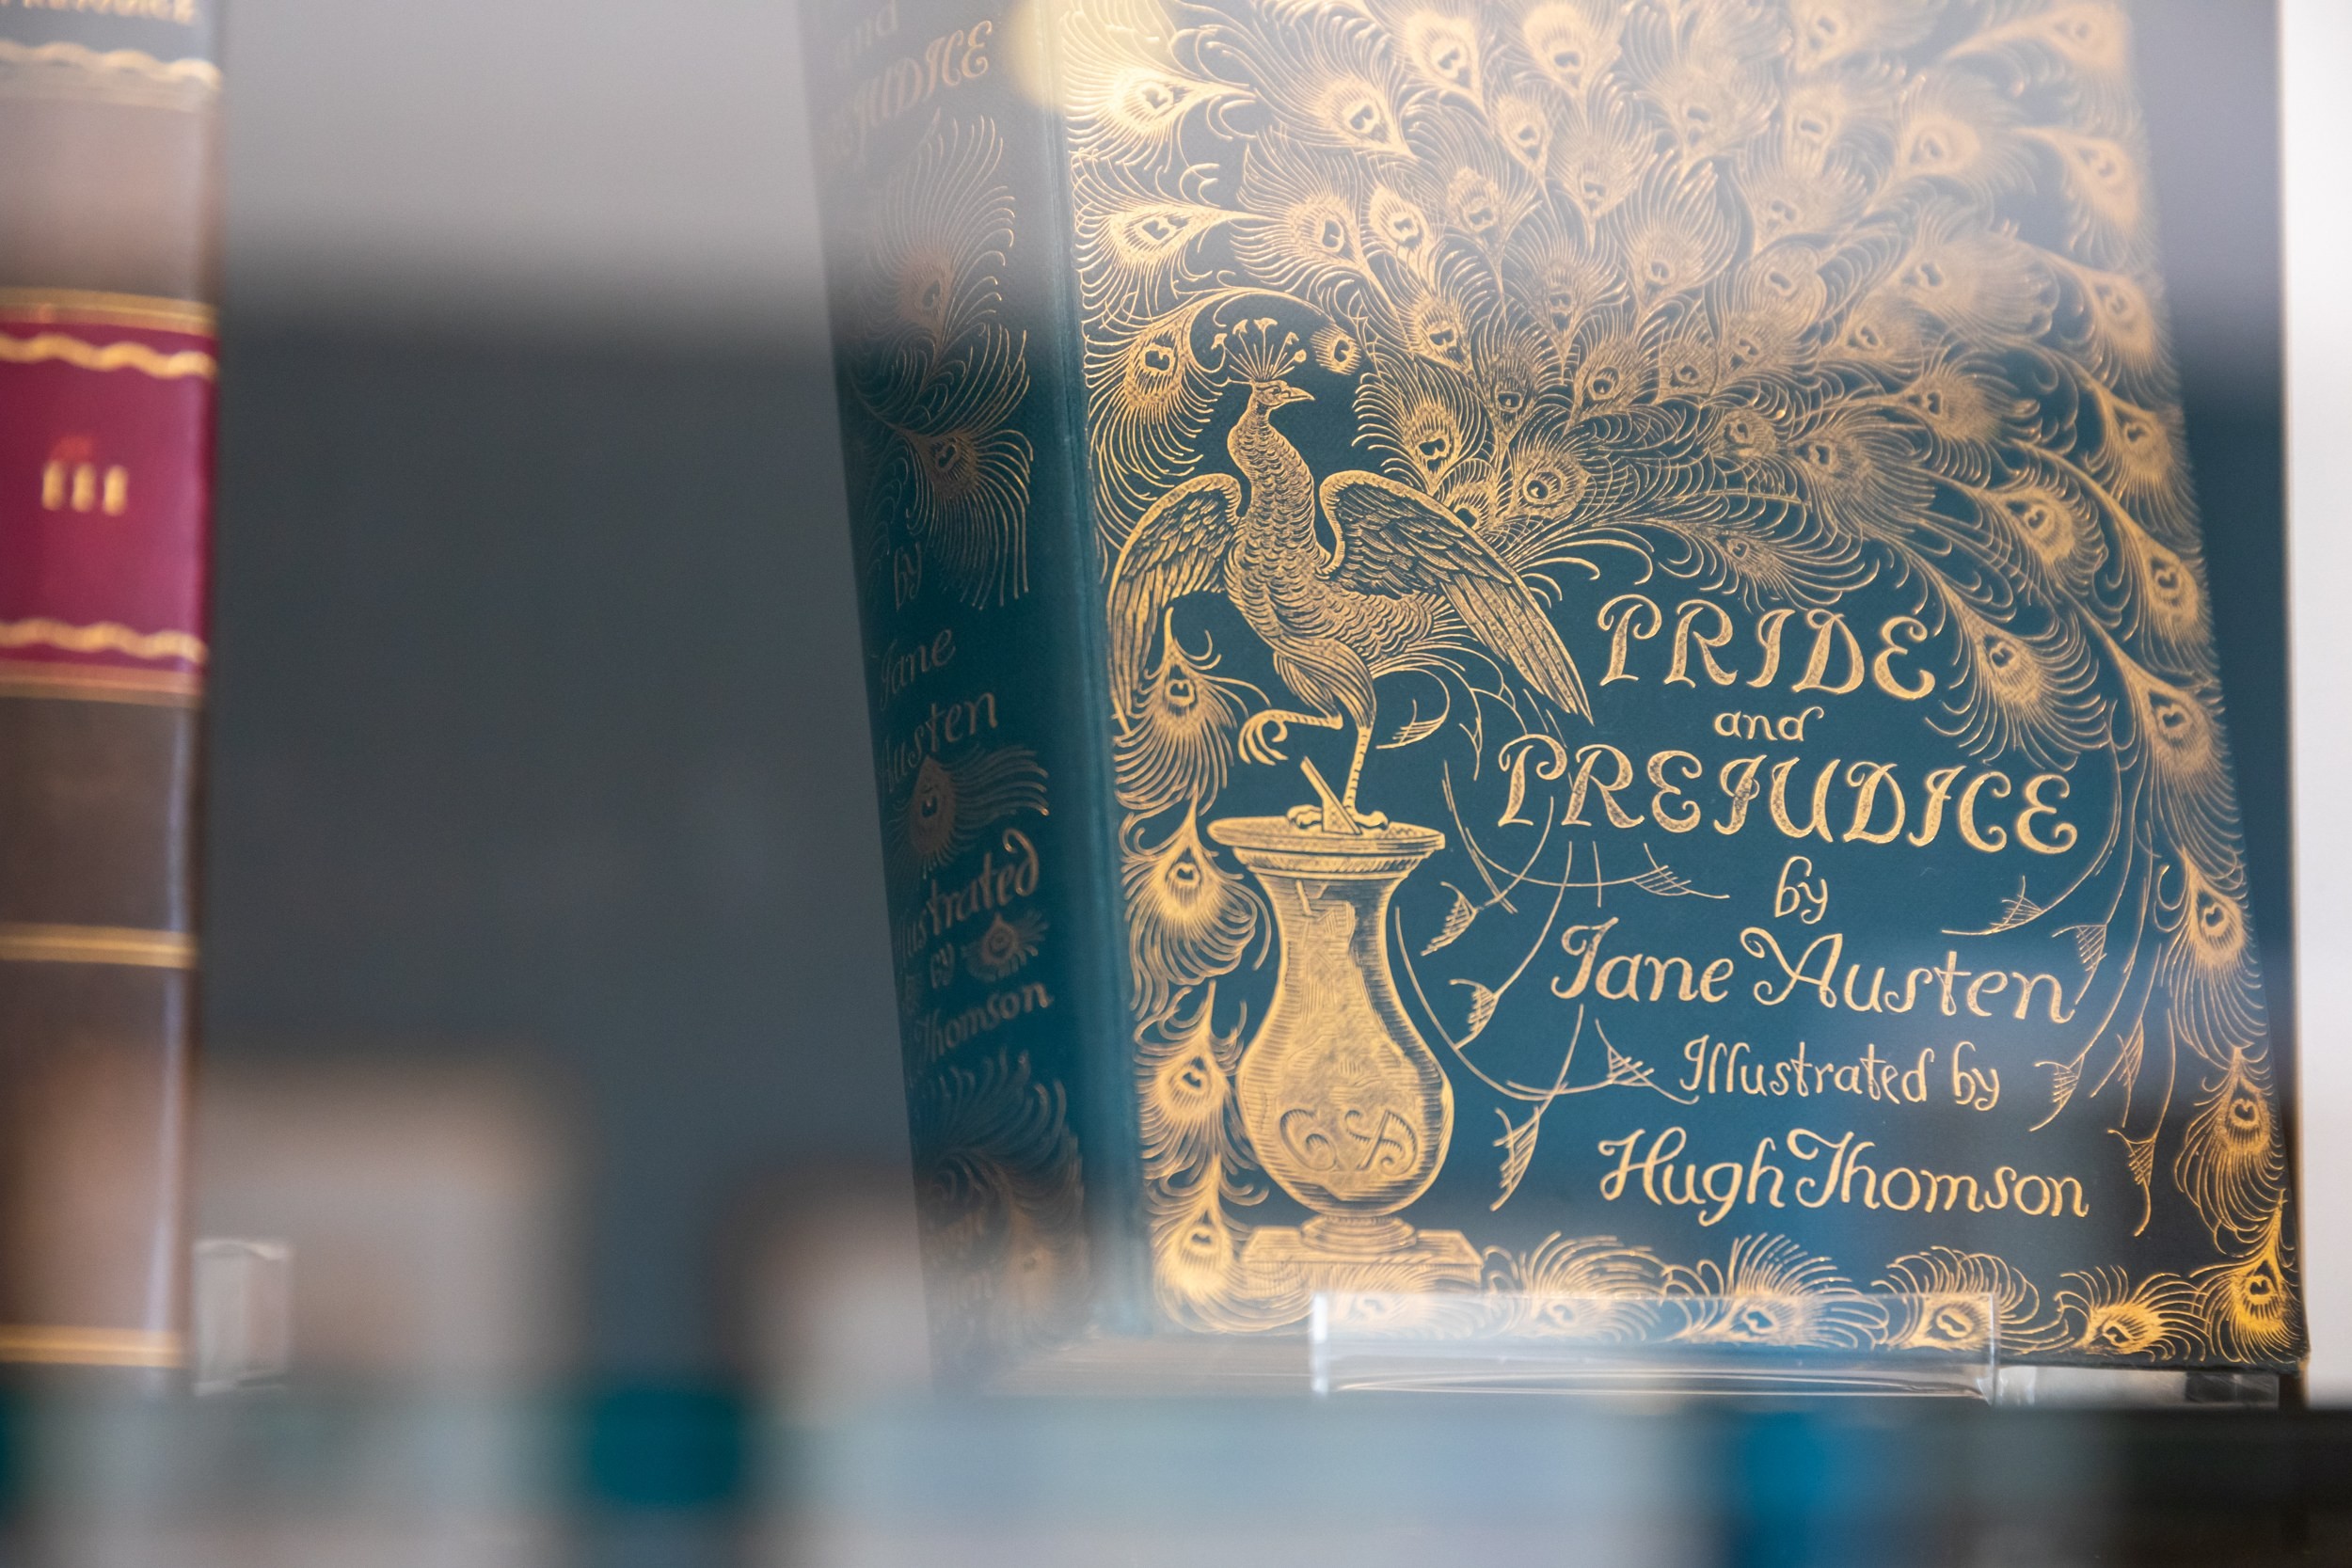 PREJUDICE
III
and
PREJUDICE
by
Jane
Austen
Illustrated
by
Thomson
PRIDE
and
PREJUDICE
by
Jane Austen
Illustrated by
Hugh Thomson